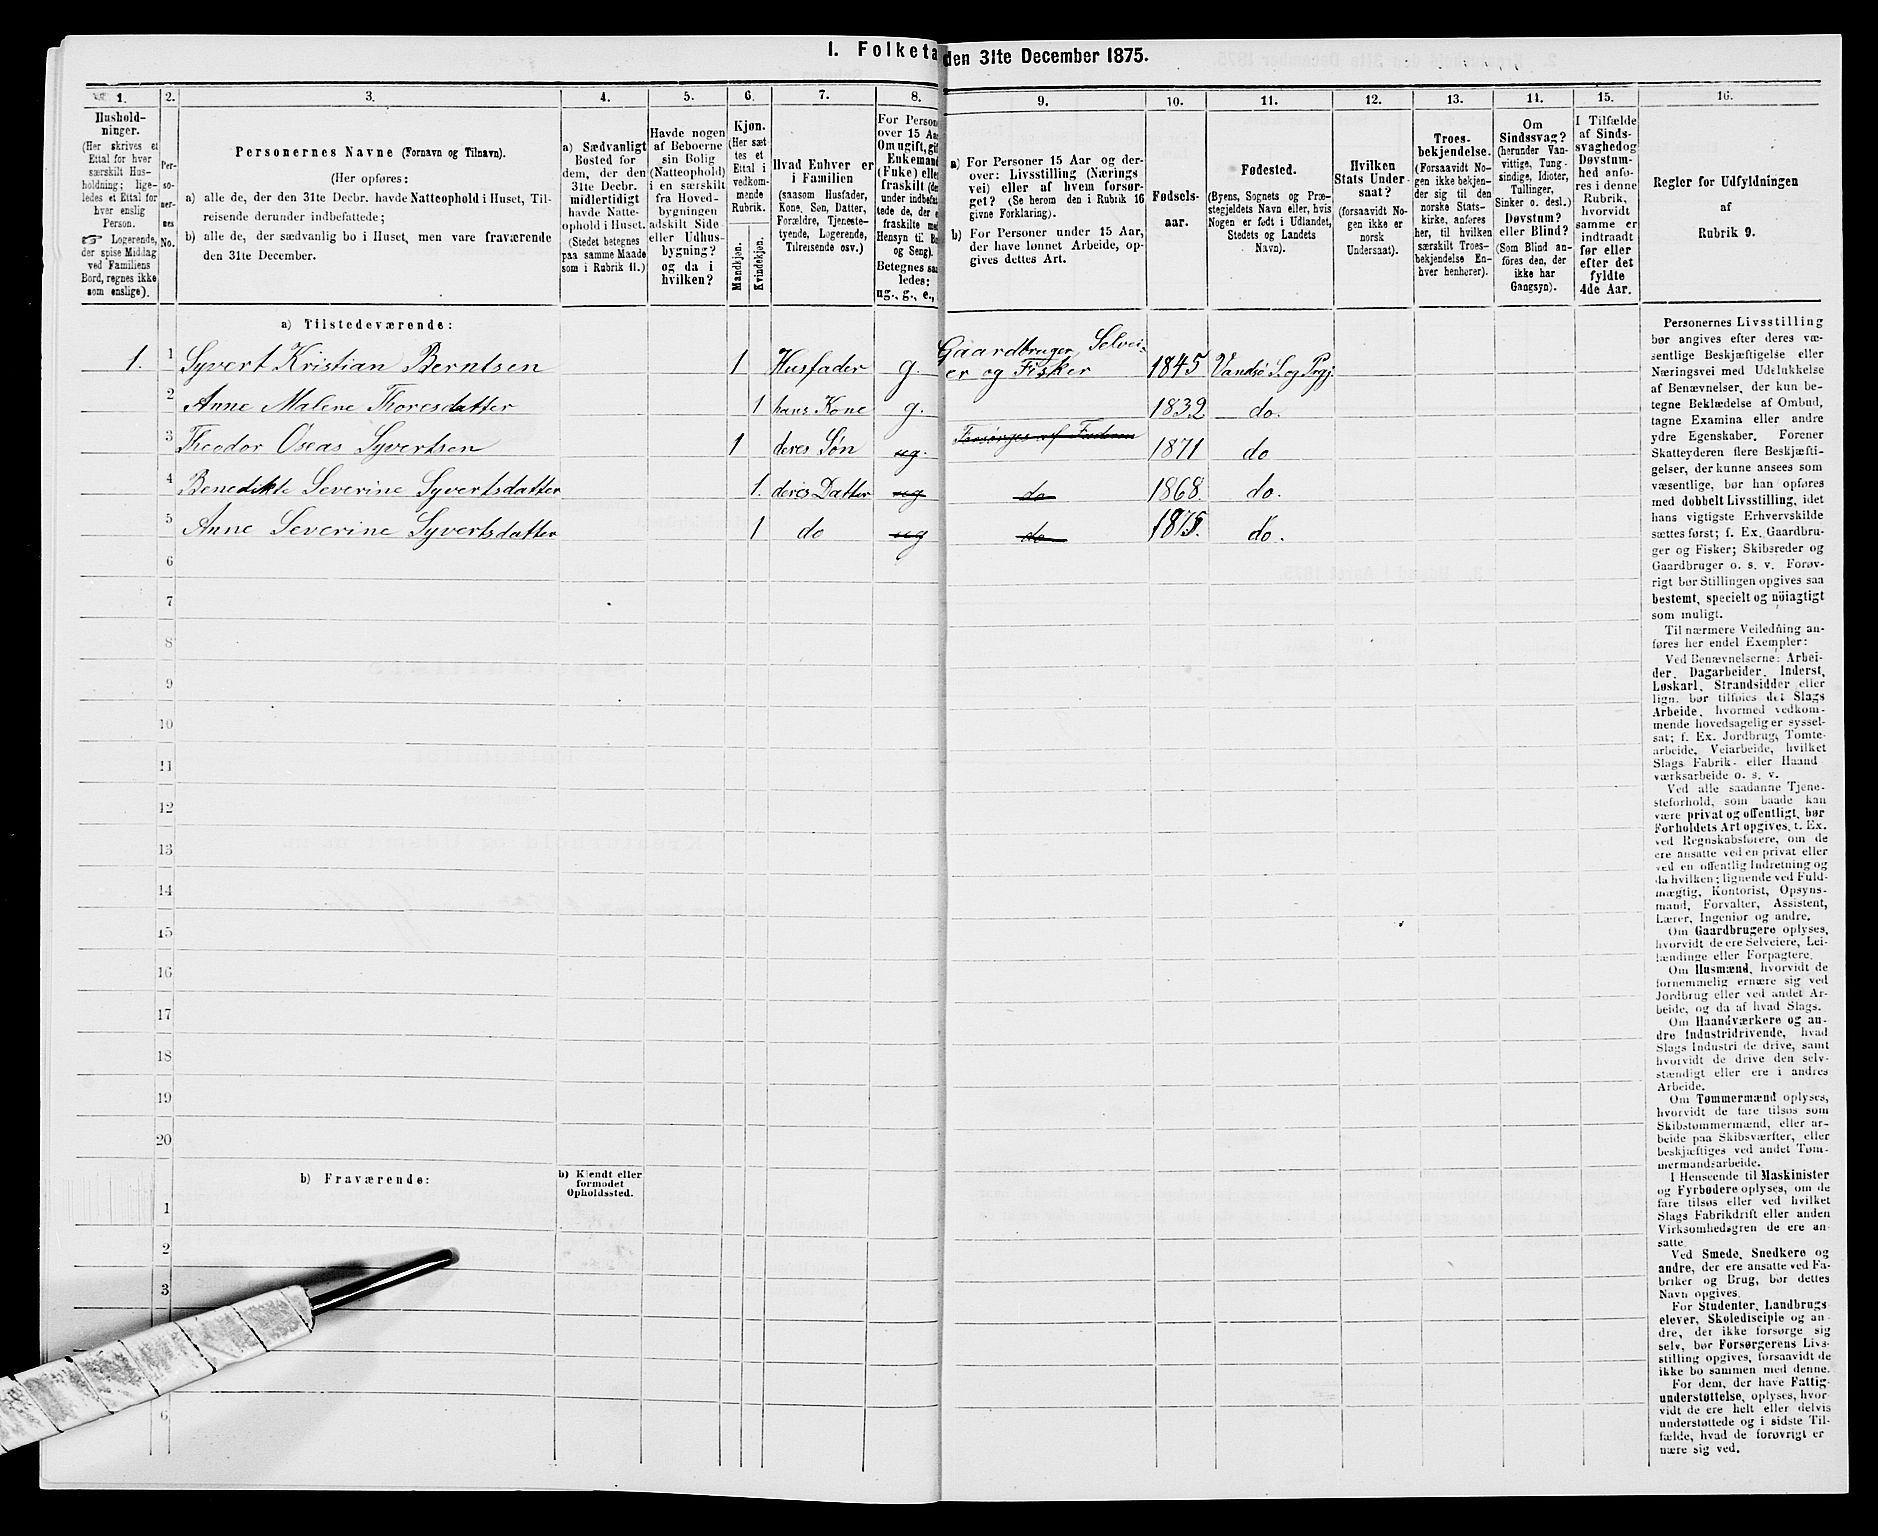 1. Folketa den 31te December 1875.
1. 2. 3. 4. 5. 6. 7. 8. 9. 10. 11. 12. 13. 14. 15. 16.
Hushold-
ninger.
(Her skrives et
Ettal for hver
særskilt Hus-
holdning; lige-
ledes et Ettal for
hver enslig
Person.
☞ Logerende,
der spise Middag
ved Familiens
Bord, regnes ikke
som enslige).
Per-
so-
ner-
nes
No.
Personernes Navne (Fornavn og Tilnavn).
(Her opføres:
a) alle de, der den 31te Decbr. havde Natteophold i Huset, Til-
reisende derunder indbefattede;
b) alle de, der sædvanlig bo i Huset, men vare fraværende
den 31te December.
a) Sædvanligt
Bosted for
dem, der den
31te Decbr.
midlertidigt
havde Natte-
ophold i Huset.
(Stedet betegnes
paa samme Maade
som i Rubrik 11.)
Havde nogen
af Beboerne
sin Bolig
(Natteophold)
i en særskilt
fra Hoved-
bygningen
adskilt Side-
eller Udhus-
bygning?
og da i
hvilken?
Kjøn.
(Her sæt-
tes et
Ettal i
vedkom-
mende
Rubrik.
Mandkjøn.
Kvindekjøn.
Hvad Enhver er
i Familien
(saasom Husfader,
Kone, Søn, Datter,
Forældre, Tjeneste-
tyende, Logerende,
Tilreisende osv.)
For Person
over 15 Aa
Om ugift, gif
Enkemand
(Fuke) elle
fraskilt (de
under indbefa
tede de, der e
fraskilte me
Hensyn til Bo
og Seng).
Betegnes saa
ledes:
ug., g., e.,
a) For Personer 15 Aar og der-
over: Livsstilling (Nærings
vei) eller af hvem forsør-
get? (Se herom den i Rubrik 16
givne Forklaring).
b) For Personer under 15 Aar,
der have lønnet Arbeide, op-
gives dettes Art.
Fødsels-
aar.
Fødested.
(Byens, Sognets og Præ-
stegjeldets Navn eller, hvis
Nogen er født i Udlandet,
Stedets og Landets
Navn).
Hvilken
Stats Under-
saat?
(forsaavidt No-
gen ikke er
norsk
Undersaat).
Troes-
bekjendelse.
(Forsaavidt No-
gen ikke bekjen-
der sig til den
norske Stats-
kirke, anføres
her, til hvilken
særskilt Troes-
bekjendelse En-
hver henhører).
Om
Sindssvag?
(herunder Van-
vittige, Tung-
sindige, Idioter,
Tullinger,
Sinker o. desl.)
Døvstum?
eller Blind?
(Som Blind an-
føres den, der
ikke har
Gangsyn).
I Tilfælde
af Sinds-
svaghed og
Døvstum-
hed anfø-
res i denne
Rubrik,
hvorvidt
samme er
indtraadt
før eller
efter det
fyldte
4de Aar.
Regler for Udfyldningen
af
Rubrik 9.
a) Tilstedeværende:
1. 1 Syvert Kristian Berntsen 1 Husfader g. Gaardbruger, Selvei-
er og Fisker 1845 Vandsø S. og Prgj.
2 Anne Malene Thoresdatter 1 hans Kone g. 1832 do.
3 Theodor Oseas Syvertsen 1 deres Søn ug. Forsørges af Faderen 1871 do
4 Benedikte Severine Syvertsdatter 1. deres Datter ug do 1868. do.
5 Anne Severine Syvertsdatter 1 do ug do 1875. do.
6
7
8
9
10
11
12
13
14
15
16
17
18
19
20
b) Fraværende:
b) Kjendt eller
formodet
Opholdssted.
1
2
3
6
Personernes Livsstilling
bør angives efter deres væ-
sentlige Beskjæftigelse eller
Næringsvei med Udelukkelse
af Benævnelser, der kun be-
tegne Beklædelse af Ombud,
tagne Examina eller andre
ydre Egenskaber. Forener
Skatteyderen flere Beskjæfti-
gelser, der kunne ansees som
væsentlige, bør han opføres
med dobbelt Livsstilling, idet
hans vigtigste Erhvervskilde
sættes først; f. Ex. Gaardbru-
ger og Fisker; Skibsreder og
Gaardbruger o. s. v. Forøv-
rigt bør Stillingen opgives saa
bestemt, specielt og nöiagtigt
som muligt.
Til nærmere Veiledning an-
føres her endel Exempler:
Ved Benævnelserne: Arbei-
der, Dagarbeider, Inderst,
Løskarl, Strandsidder eller
lign. bør tilføies det Slags
Arbeide, hvormed vedkom-
mende hovedsagelig er syssel-
sat; f. Ex. Jordbrug, Tomte-
arbeide, Veiarbeide, hvilket
Slags Fabrik- eller Haand
værksarbeide o. s. v.
Ved alle saadanne Tjene-
steforhold, som baade kan
være privat og offentligt, bør
Forholdets Art opgives, t. Ex.
ved Regnskabsførere, om de
ere ansatte ved en privat eller
ved en offentlig Indretning og
da hvilken; lignende ved Fuld-
mægtig, Kontorist, Opsyns-
mand, Forvalter, Assistent,
Lærer, Ingeniør og andre.
Om Gaardbrugere oplyses,
hvorvidt de ere Selveiere, Lei-
lændinge eller Forpagtere.
Om Husmænd, hvorvidt de
fornemmelig ernære sig ved
Jordbrug eller ved andet Ar-
beide, og da af hvad Slags.
Om Haandværkere og an-
dre Industridrivende, hvad
Slags Industri de drive, samt
hvorvidt de drive den selv-
stændigt eller ere i andres
Arbeide.
Om Tømmermænd oplyses,
hvorvidt de fare tilsøs som
Skibstømmermænd, eller ar-
beide paa Skibsværfter, eller
beskjæftiges ved andet Tøm-
mermandsarbeide.
I Henseende til Maskinister
og Fyrbødere oplyses, om de
fare tilsøs eller ved hvilket
Slags Fabrikdrift eller anden
Virksomhedsgren de ere an-
satte.
Ved Smede, Snedkere og
andre, der ere ansatte ved Fa-
briker og Brug, bør dettes
Navn opgives.
For Studenter, Landbrugs-
elever, Skoledisciple og an-
dre, der ikke forsørge sig
selv, bør Forsørgerens Livs-
stilling opgives, forsaavidt de
ikke bo sammen med denne.
For dem, der have Fattig-
understøttelse, oplyses, hvor-
vidt de ere helt eller delvis
understøttede og i sidste Til-
fælde, hvad de forøvrigt er
nære sig ved.